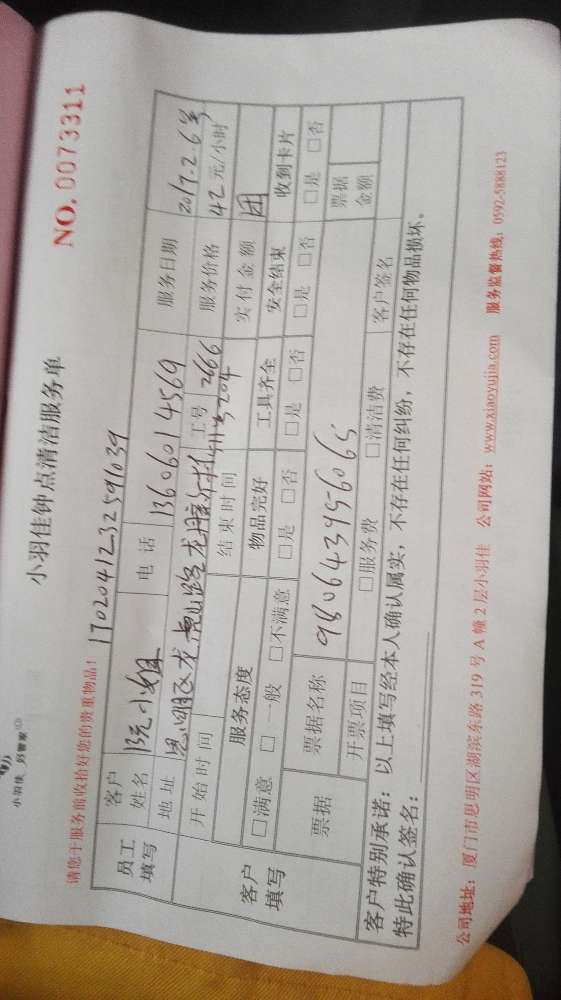 小羽佳 好管家
小羽佳钟点清洁服务单
请您于服务前收拾好您的贵重物品！
NO. 0073311
1702041232591039
员工填写
客户姓名 小姐 电话 13606014569 服务日期 2017.2.6号
地址 思明区龙虎山路 工号 2666 服务价格 42元/小时
开始时间 结束时间 实付金额 团
客户填写
服务态度 物品完好 工具齐全 安全结束 收到卡片
□满意 □一般 □不满意 □是 □否 □是 □否 □是 □否 □是 □否
票据 票据名称 9806439956065 票据金额
开票项目 □服务费 □清洁费 客户签名
客户特别承诺：以上填写经本人确认属实，不存在任何纠纷，不存在任何物品损坏。
特此确认签名：
公司地址：厦门市思明区湖滨东路319号A幢2层小羽佳 公司网站：www.xiaoyujia.com 服务监督热线：0592-5888123